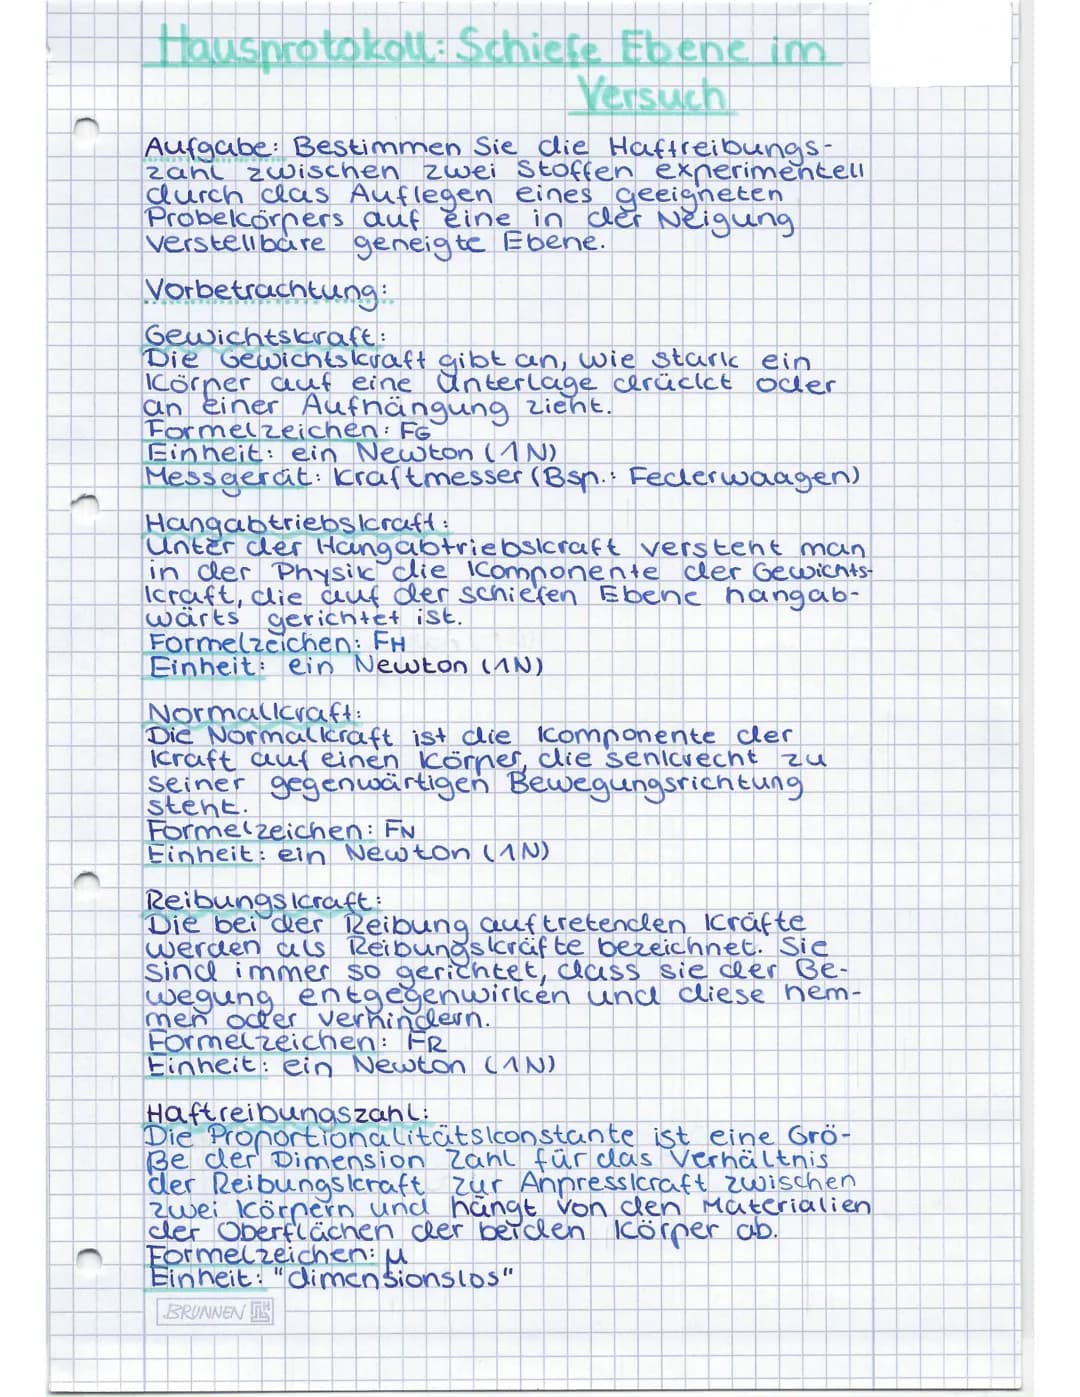 Hausprotokoll: Schiefe Ebene im
Versuch
Aufgabe: Bestimmen Sie die Haftreibungs-
zahl zwischen zwei Stoffen experimentell
durch das Auflegen eines geeigneten
Probekörpers auf eine in der Neigung
verstellbare geneigte Ebene.
Vorbetrachtung:
Gewichtskraft:
Die Gewichtskraft gibt an, wie stark ein
Körper auf eine Unterlage drückt oder
an einer Aufhängung zieht.
Formelzeichen: FG
Einheit: ein Newton (1N)
Messgerät: Kraftmesser (Bsp.: Federwaagen)
Hangabtriebskraft:
Unter der Hangabtriebskraft versteht man
in der Physik die Komponente der Gewichts-
kraft, die auf der schiefen Ebene hangab-
wärts gerichtet ist.
Formelzeichen: FH
Einheit: ein Newton (1N)
Normalkraft:
Die Normalkraft ist die Komponente der
Kraft auf einen Körper, die senkrecht zu
seiner gegenwärtigen Bewegungsrichtung
steht.
Formelzeichen: FN
Einheit: ein Newton (1N)
Reibungskraft:
Die bei der Reibung auftretenden Kräfte
werden als Reibungskräfte bezeichnet. Sie
sind immer so gerichtet, dass sie der Be-
wegung entgegenwirken und diese hem-
men oder verhindern.
Formelzeichen: FR
Einheit: ein Newton (1N)
Haftreibungszahl:
Die Proportionalitätskonstante ist eine Grö-
ße der Dimension Zahl für das Verhältnis
der Reibungskraft zur Anpresskraft zwischen
zwei Körpern und hängt von den Materialien
der Oberflächen der beiden Körper ab.
Formelzeichen: µ
Einheit: "dimensionslos"
BRUNNEN